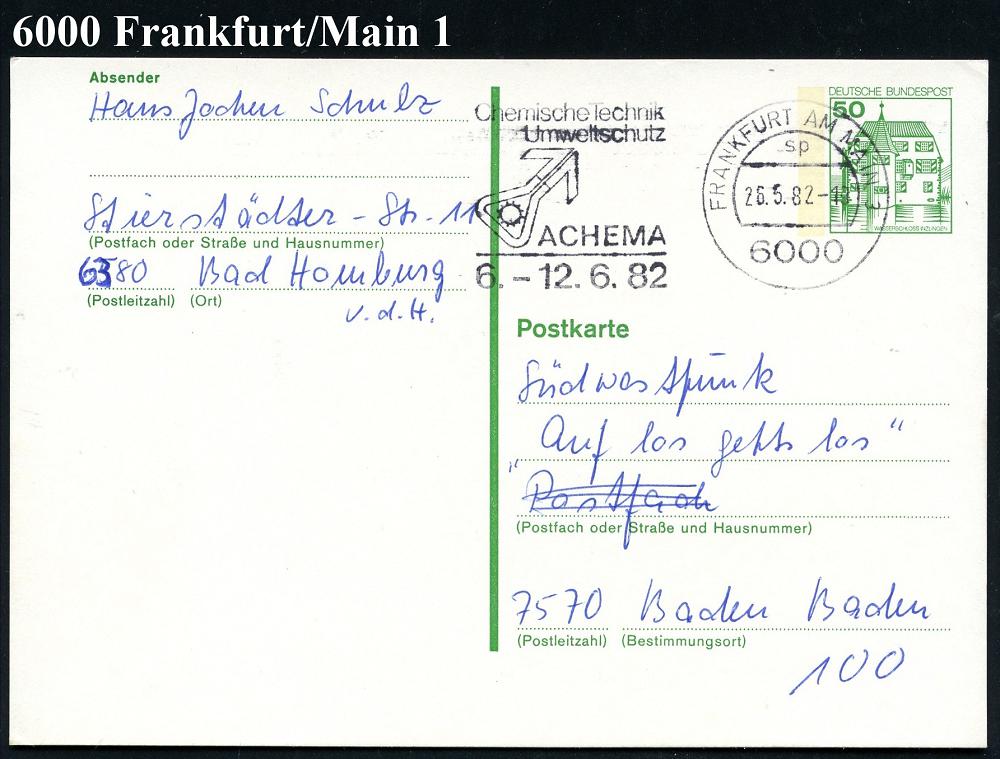 6000 Frankfurt/Main 1
Absender
Hans Jochen Schulz
Stierstädter - Str. 11
(Postfach oder Straße und Hausnummer)
6380 Bad Homburg
(Postleitzahl) (Ort)
v.d.H.
Chemische Technik
Umweltschutz
ACHEMA
6. – 12. 6. 82
FRANKFURT AM MAIN 3
sp
26.5.82-18
6000
DEUTSCHE BUNDESPOST
50
WASSERSCHLOSS INZLINGEN
Postkarte
Südwestfunk
„Auf los gehts los“
Postfach
(Postfach oder Straße und Hausnummer)
7570 Baden Baden
(Postleitzahl) (Bestimmungsort)
100